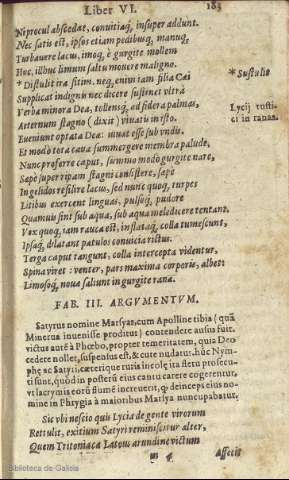 Liber VI. 183
Ni procul abscedat, convitiaq́, insuper addunt.
Nec satis est, ipsos etiam pedibusq́, manuq́,
Turbavere lacus, imoq́, è gurgite mollem
Huc, illuc limum saltu movere maligno.
* Distulit ira sitim. neq, enim iam filia Cæi * Sustulit
Supplicat indignis nec dicere sustinet vltrà
Verba minora Dea, tollensq́, ad sidera palmas, Lycij rusti-
Aeternum stagno (dixit) vivatis in isto. ci in ranas.
Eveniunt optata Deæ: iuvat esse sub vndis.
Et modò tota cava summergere membra palude,
Nunc proferre caput, summo modò gurgite nare,
Sæpè super ripam stagni consistere, sæpè
In gelidos resilire lacus, sed nunc quoq, turpes
Litibus exercent linguas, pulsoq́, pudore
Quamuis sint sub aqua, sub aqua maledicere tentant.
Vox quoq, iam rauca est, inflataq́, colla tumescunt,
Ipsaq́, dilatant patulos convicia rictus.
Terga caput tangunt, colla intercepta videntur,
Spina viret: venter, pars maxima corporis, albet:
Limosoq́, noua saliunt in gurgite ranæ.
FAB. III. ARGVMENTVM.
Satyrus nomine Marsyas, cum Apolline tibia (quā
Minerua inuenisse proditur) contendere ausus fuit.
victus autē à Phœbo, propter temeritatem, quia Deo
cedere nollet, suspensus est, & cute nudatus. huc Nym-
phę ac Satyri, cæterique ruris incolę ita fletu prosecu-
ti sunt, quòd in posterū eius cantu carere cogerentur,
vt lacrymis eorū flumē increuerit, q deinceps eius no-
mine in Phrygia à maioribus Marsya nuncupabatur.
Sic vbi nescio quis Lycia de gente virorum
Rettulit, exitium Satyri reminiscitur alter,
Quem Tritoniaca Latous arundine victum
Affecit
Biblioteca de Galicia